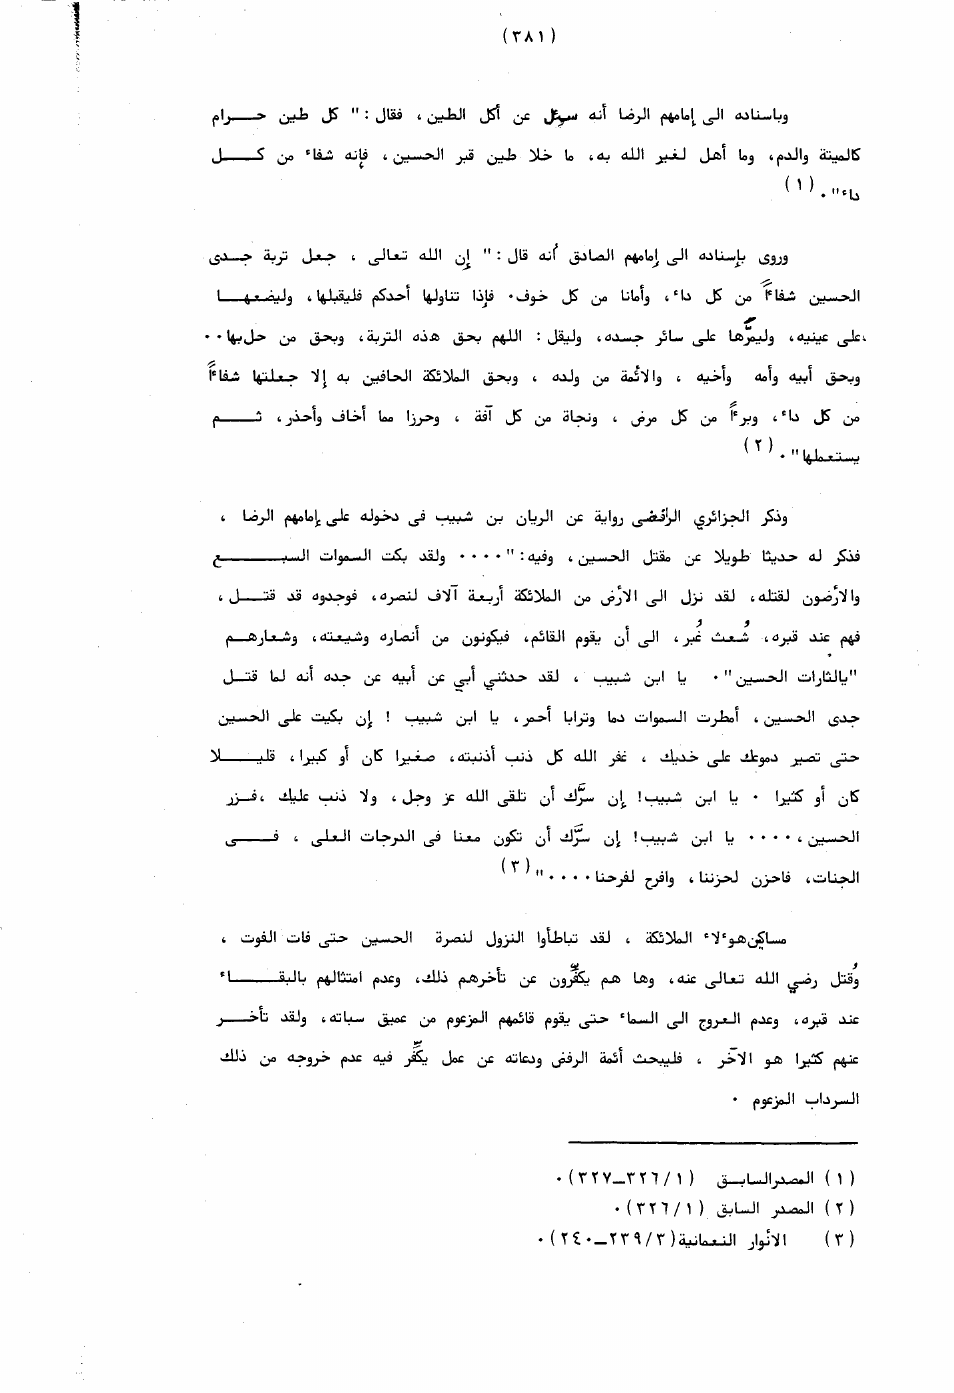 (٣٨١)
وباسناده الى إمامهم الرضا أنه سوئل عن أكل الطين، فقال: " كل طين حـــرام
كالميتة والدم، وما أهل لغير الله به، ما خلا طين قبر الحسين، فإنه شفاء من كـــل
داء". (١)
وروى بإسناده الى إمامهم الصادق أنه قال: " إن الله تعالى ، جعل تربة جدى
الحسين شفاءً من كل داء، وأمانا من كل خوف. فإذا تناولها أحدكم فليقبلها، وليضعهـا
على عينيه، وليمرّها على سائر جسده، وليقل: اللهم بحق هذه التربة، وبحق من حل بها..
وبحق أبيه وأمه وأخيه ، والائمة من ولده ، وبحق الملائكة الحافين به إلا جعلتها شفاءً
من كل داء، وبرءاً من كل مرض ، ونجاة من كل آفة ، وحرزا مما أخاف وأحذر، ثـــم
يستعملها". (٢)
وذكر الجزائري الرافضى رواية عن الريان بن شبيب فى دخوله على إمامهم الرضا ،
فذكر له حديثا طويلا عن مقتل الحسين، وفيه: ".... ولقد بكت السموات السبـــع
والارضون لقتله، لقد نزل الى الارض من الملائكة أربعة آلاف لنصره، فوجدوه قد قتـــل،
فهم عند قبره، شُعث غُبر، الى أن يقوم القائم، فيكونون من أنصاره وشيعته، وشعارهــم
"يالثارات الحسين". يا ابن شبيب ، لقد حدثني أبي عن أبيه عن جده أنه لما قتــل
جدى الحسين، أمطرت السموات دما وترابا أحمر، يا ابن شبيب ! إن بكيت على الحسين
حتى تصير دموعك على خديك ، غفر الله كل ذنب أذنبته، صغيرا كان أو كبيرا، قليـــلا
كان أو كثيرا . يا ابن شبيب! إن سرّك أن تلقى الله عز وجل، ولا ذنب عليك ،فــزر
الحسين،.... يا ابن شبيب! إن سرّك أن تكون معنا فى الدرجات العلى ، فـــى
الجنات، فاحزن لحزننا، وافرح لفرحنا...." (٣)
مساكين هوءلاء الملائكة ، لقد تباطأوا النزول لنصرة الحسين حتى فات الفوت ،
وقُتل رضي الله تعالى عنه، وها هم يكفّرون عن تأخرهم ذلك، وعدم امتثالهم بالبقـــاء
عند قبره، وعدم العروج الى السماء حتى يقوم قائمهم المزعوم من عميق سباته، ولقد تأخـــر
عنهم كثيرا هو الآخر ، فليبحث أئمة الرفض ودعاته عن عمل يكفّر فيه عدم خروجه من ذلك
السرداب المزعوم .
(١) المصدر السابــق (٣٢٦/١ــ٣٢٧).
(٢) المصدر السابق (٣٢٦/١).
(٣) الانوار النعمانية (٢٣٩/٣ــ٢٤٠).